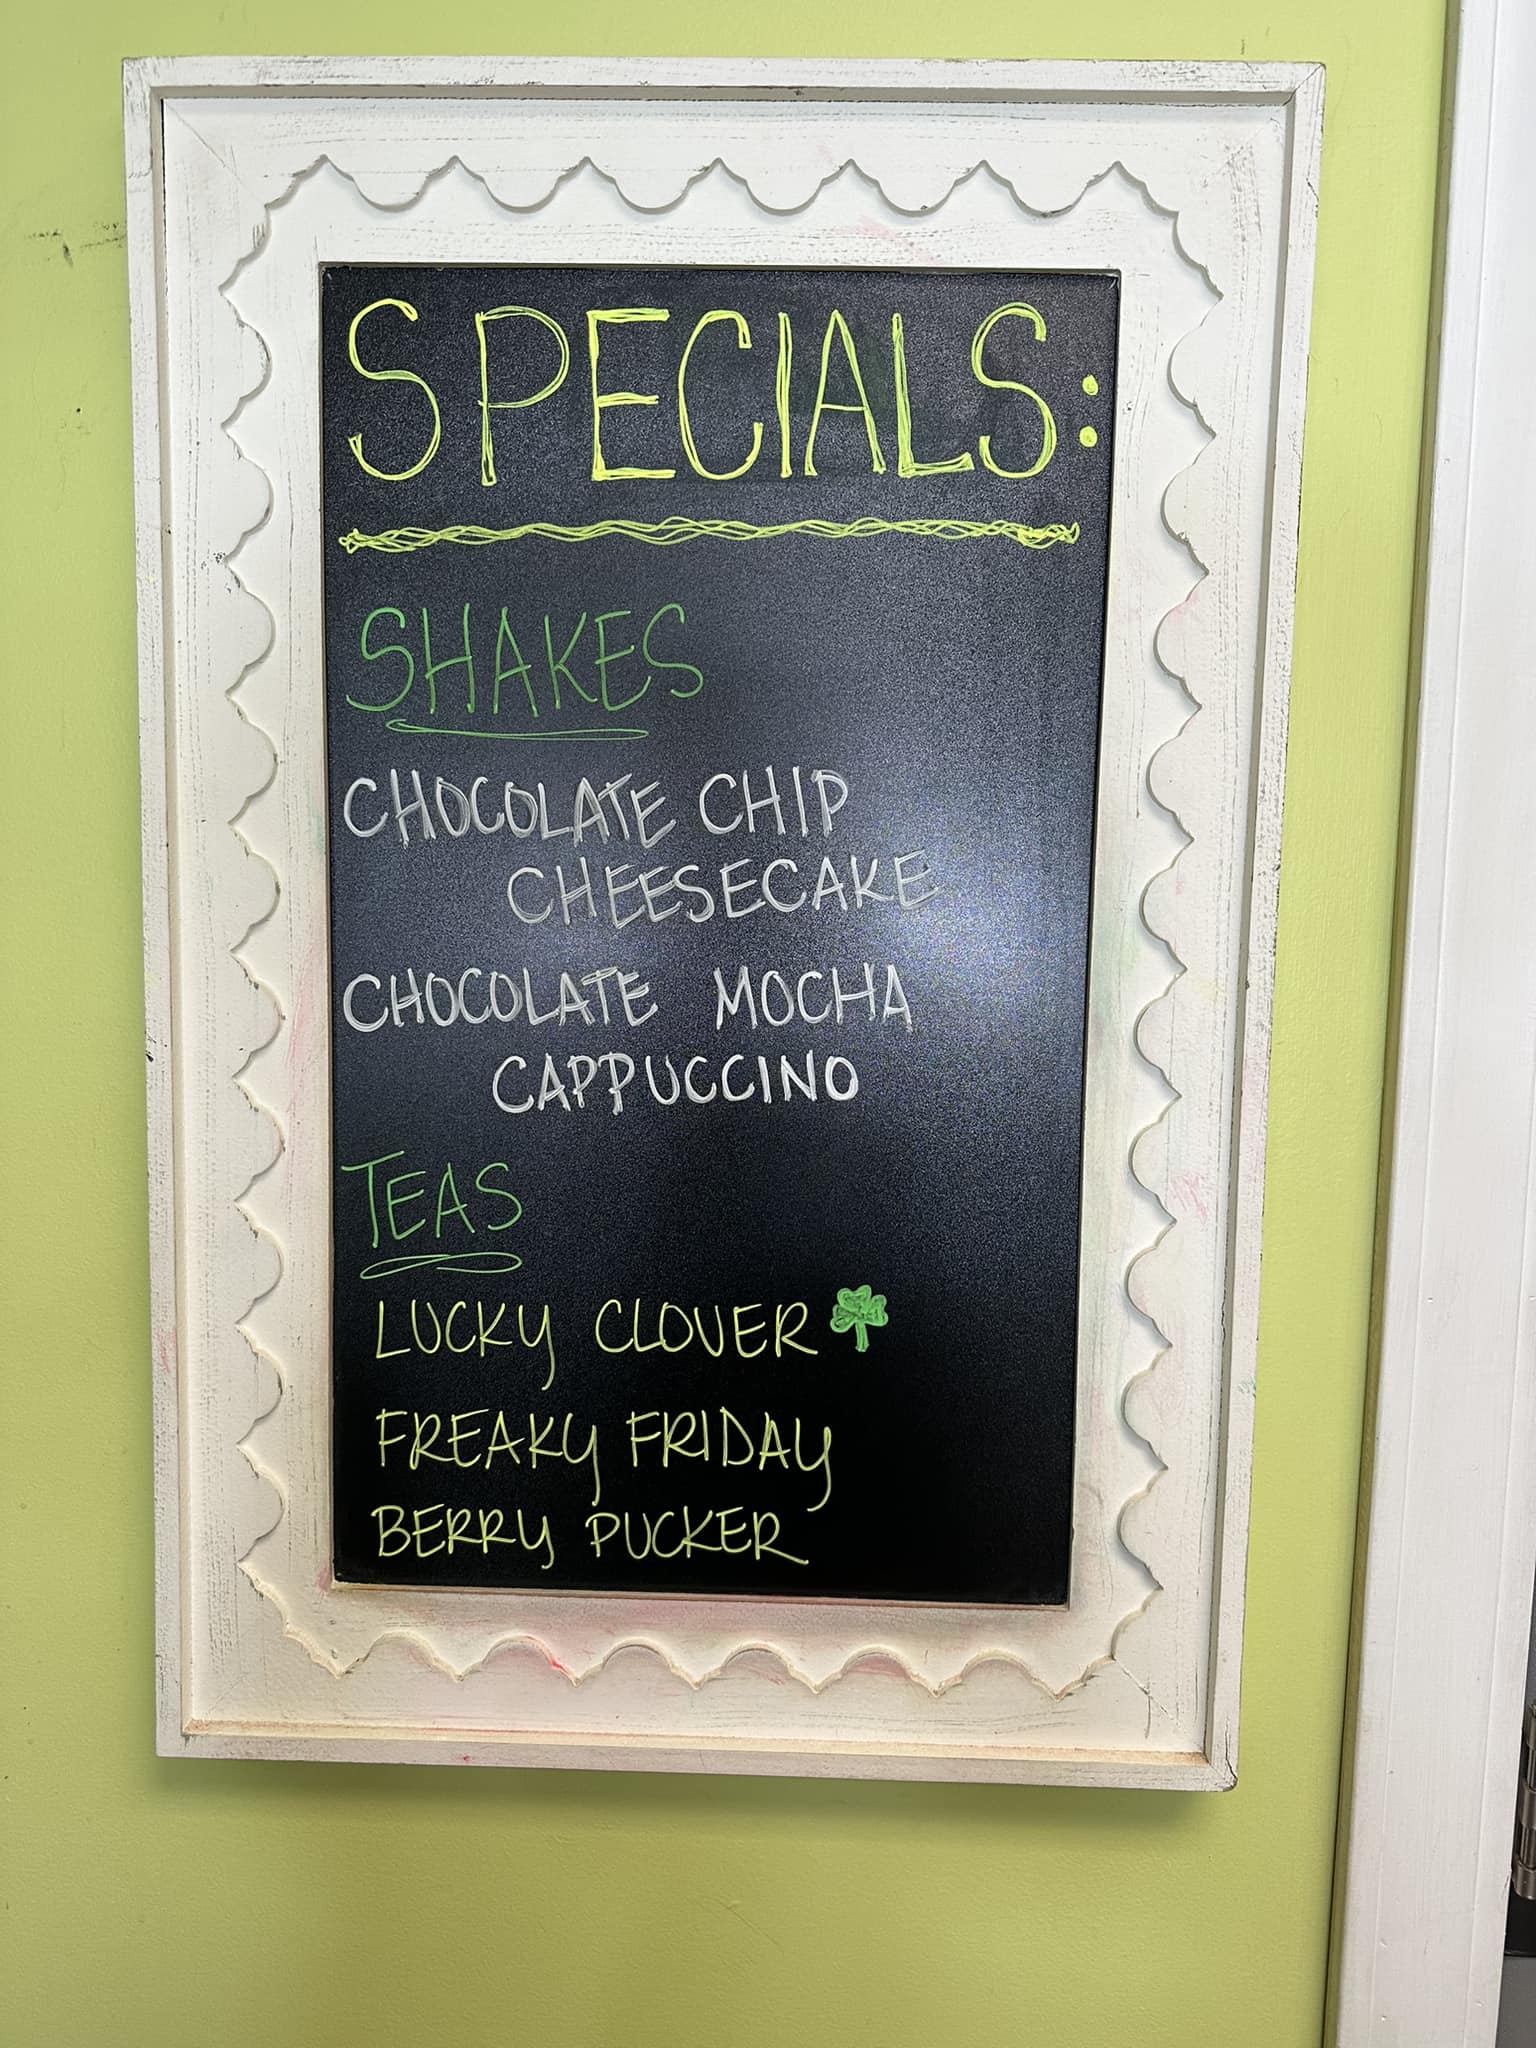 SPECIALS:
SHAKES
CHOCOLATE CHIP
CHEESECAKE
CHOCOLATE MOCHA
CAPPUCCINO
TEAS
LUCKY CLOVER
FREAKY FRIDAY
BERRY PUCKER